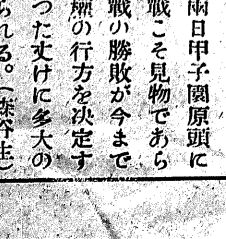 兩日甲子園原頭に
戰こそ見物であら
戰の勝敗が今まで
の行方を決定す
つた丈けに多大の
られる。（森谷生）